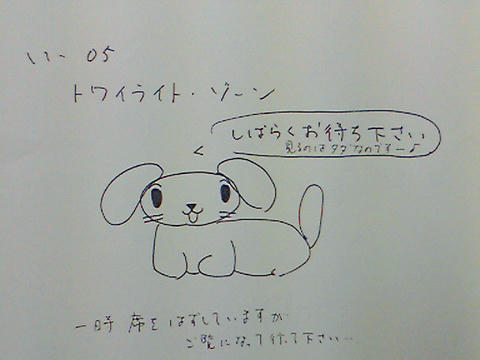 い- 05
トワイライト・ゾーン
しばらくお待ち下さい
見るのはタダなのですー♪
一時 席をはずしていますが
ご覧になって待て下さい…